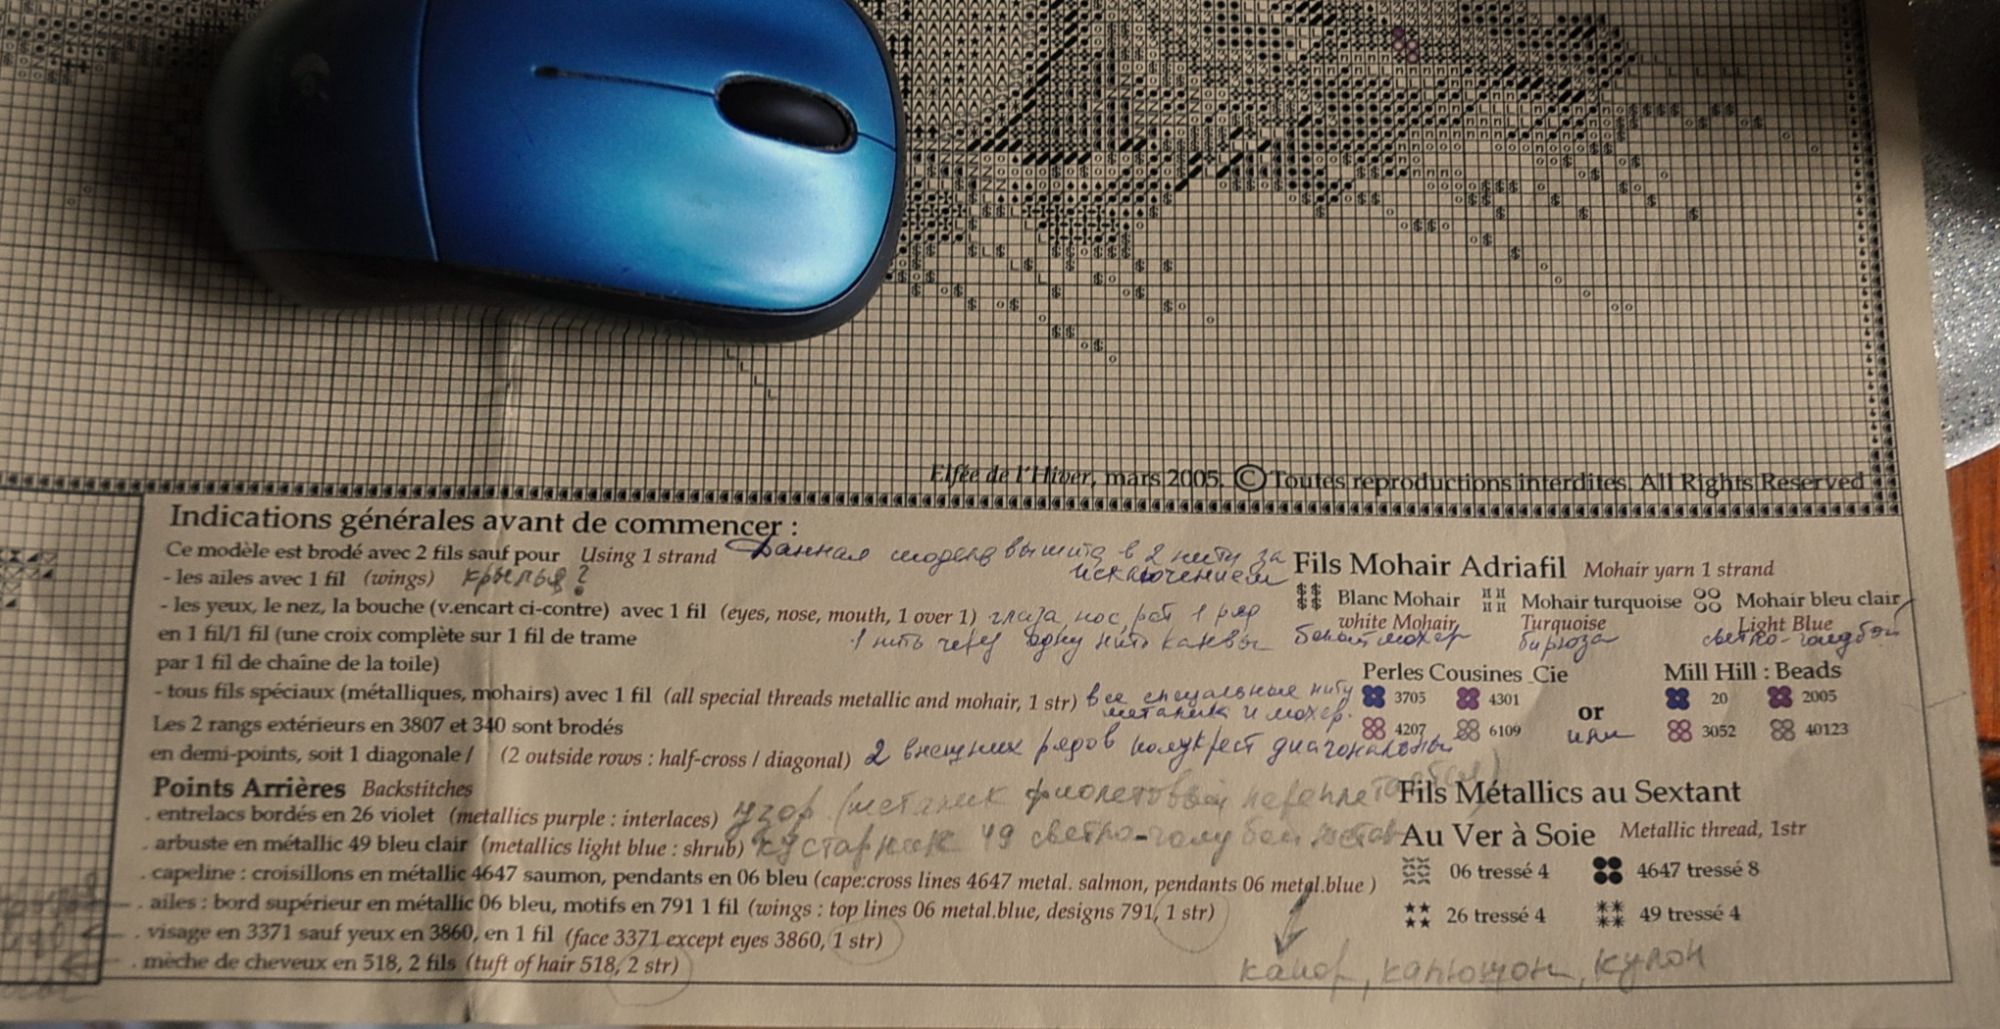 Elfée de l'Hiver, mars 2005. © Toutes reproductions interdites. All Rights Reserved
Indications générales avant de commencer :
Ce modèle est brodé avec 2 fils sauf pour Using 1 strand Данная модель вышита в 2 нити за
исключением
- les ailes avec 1 fil (wings) крылья?
- les yeux, le nez, la bouche (v.encart ci-contre) avec 1 fil (eyes, nose, mouth, 1 over 1) глаза, нос, рот 1 ряд
en 1 fil/1 fil (une croix complète sur 1 fil de trame 1 нить через одну нить канвы
par 1 fil de chaîne de la toile)
- tous fils spéciaux (métalliques, mohairs) avec 1 fil (all special threads metallic and mohair, 1 str) все специальные нити
металлик и мохер.
Les 2 rangs extérieurs en 3807 et 340 sont brodés
en demi-points, soit 1 diagonale / (2 outside rows : half-cross / diagonal) 2 внешних рядов полукрест
Points Arrières Backstitches
. entrelacs bordés en 26 violet (metallics purple : interlaces) узор (металик фиолетовый
. arbuste en métallic 49 bleu clair (metallics light blue : shrub) кустарник 49 светло-голубой
. capeline : croisillons en métallic 4647 saumon, pendants en 06 bleu (cape:cross lines 4647 metal. salmon, pendants 06 metal.blue )
. ailes : bord supérieur en métallic 06 bleu, motifs en 791 1 fil (wings : top lines 06 metal.blue, designs 791, 1 str)
. visage en 3371 sauf yeux en 3860, en 1 fil (face 3371 except eyes 3860, 1 str)
. mèche de cheveux en 518, 2 fils (tuft of hair 518, 2 str)
капор, капюшон, кулон
Fils Mohair Adriafil Mohair yarn 1 strand
Blanc Mohair Mohair turquoise Mohair bleu clair
white Mohair Turquoise Light Blue
белый мохер бирюза светло-голубой
Perles Cousines Cie Mill Hill : Beads
3705 4301 20 2005
or
или
4207 6109 3052 40123
Fils Métallics au Sextant
Au Ver à Soie Metallic thread, 1str
06 tressé 4 4647 tressé 8
26 tressé 4 49 tressé 4